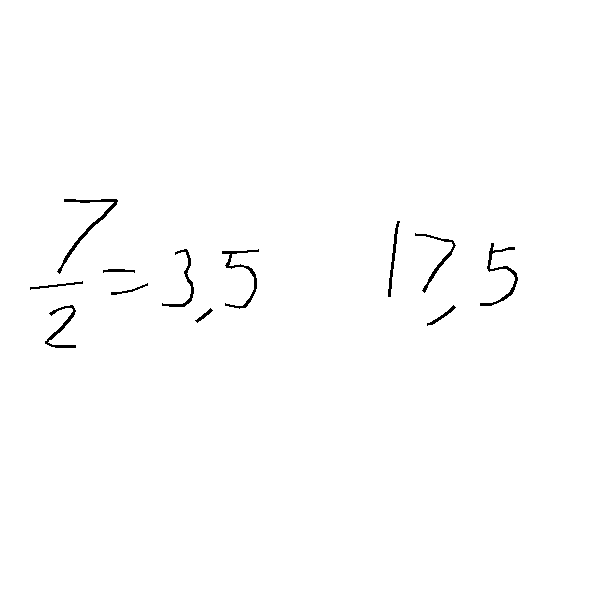 7/2 = 3,5 17,5